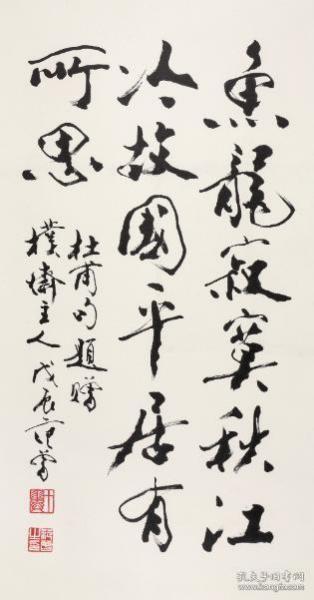 魚龍寂寞秋江
冷故國平居有
所思
杜甫句題贈
樸墉主人戊辰范曾
孔夫子旧书网